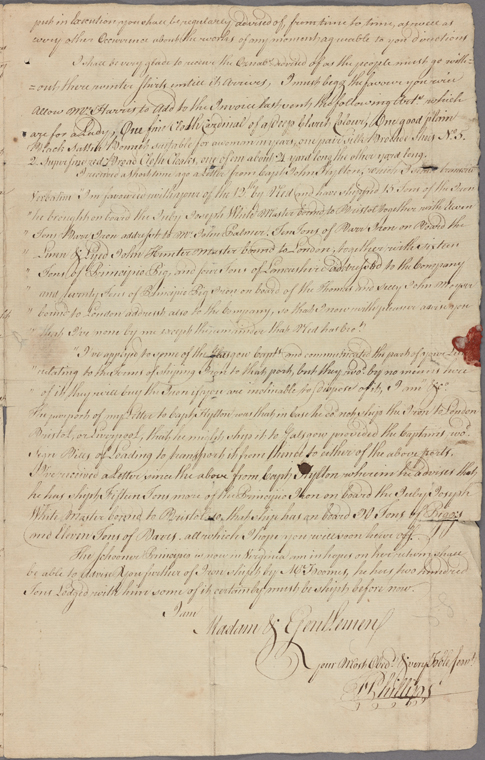 put in Execution, you shall be regularly advised of, from time to time, as well as
every other Occurrence about the works of any moment, agreeable to your directions
I shall be very glad to receive the as the people must go with-
-out their winter shirts untill it arrives, I must begg the favour you will
Allow Mr. Harris to Add to the Invoice last sent the following Arts. which
are for a Lady, One fine Cloth Cardinal of a deep Claret Colour, One good plain
Black Sattin Bonnet suitable for a woman in years, one pair Silk Size No. 5.
2 Superfine red Broad Cloth Cloaks, one of em about yard long the other yard long.
I received a short time ago a Letter from Capt. John Hylton, which I
Verbatim "I'm favoured with yours of the 13th by Ned and have shipped 15 Tons of the Iron
" he brought on board the Ruby Joseph White Master bound to Bristol together with Eleven
" Tons Barr Iron address'd to Mr. John Six Tons of Barr Iron on Board the
" Lunn & Lloyd John Hunter Master bound to London, together with sixteen
" Tons of Principio Pig, and four Tons of Lancashire address'd to the Company
" and twenty Tons of Principio Pig Iron on board of the Thomas and John
" bound to London address'd also to the Company, so that I now with pleasure advise you
" that I've none by me except the remainder that Ned has &ca."
I've applyed to some of the Glasgow Capts. and communicated the parts of your Letter
relating to the terms of shiping Iron to that port, but they wod. by no means hear
of it, they will buy the Iron if you are inclinable to dispose of it, I am &c
The purport of my Letter to Capt. Hylton was that in case he cod. not ship the Iron to London
Bristol, or Liverpool, that he might ship it to Glasgow provided the Captains wod.
sign Bills of Loading to transport it from thence to either of the above ports.
I've received a Letter since the above from Capt. Hylton wherein he advises that
he has shipt Fifteen Tons more of the Principio Iron on board the Ruby Joseph
White Master bound to Bristol so that ship has on board 30 Tons of Piggs
and Eleven Tons of Barrs, all which I hope you will soon hear off.
The schooner Principio is now in Virginia am in hopes on her return, I shall
be able to advise you further of Iron shipt by Mr. he has two hundred
Tons Lodged with him some of it certainly must be shipt before now.
I am
Madam & Gentlemen
your Most Obedt. & very Hble Servt.
Phillips